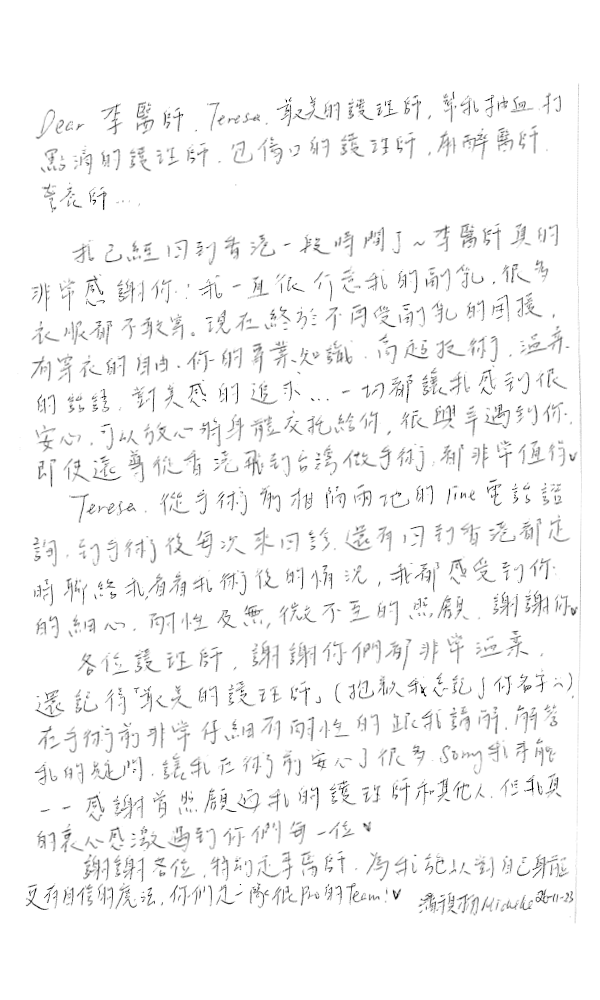 Dear 李醫師、Teresa、最美的護理師, 幫我抽血、打
點滴的護理師、包傷口的護理師, 麻醉醫師、
營養師....
我已經回到香港一段時間了~李醫師真的
非常感謝你!我一直很介意我的副乳, 很多
衣服都不敢穿。現在終於不再受副乳的困擾,
有穿衣的自由。你的專業知識、高超技術、溫柔
的 對美感的追求...一切都讓我感到很
安心, 可以放心將身體交託給你, 很興幸遇到你.
即使遠 從香港飛到台灣做手術, 都非常值得♥
Teresa, 從手術前相隔兩地的line電話諮
詢、到手術後每次來回診、還有回到香港都定
時聯絡我看看我術後的情況, 我都感受到你
的細心、耐性及無微不至的照顧、謝謝你♥
各位護理師, 謝謝你們都非常溫柔,
還記得「最美的護理師」(抱歉我忘記了你名字
在手術前非常仔細有耐性的跟我講解、解答
我的疑問、讓我在術前安心了很多. Sorry我未能
一一感謝曾照顧過我的護理師和其他人, 但我真
的衷心感激遇到你們每一位♥
謝謝各位, 特別是李醫師, 為我施以對自己身體
更有自信的魔法, 你們是一隊很Pro的Team!♥
Michelle 26-11-23